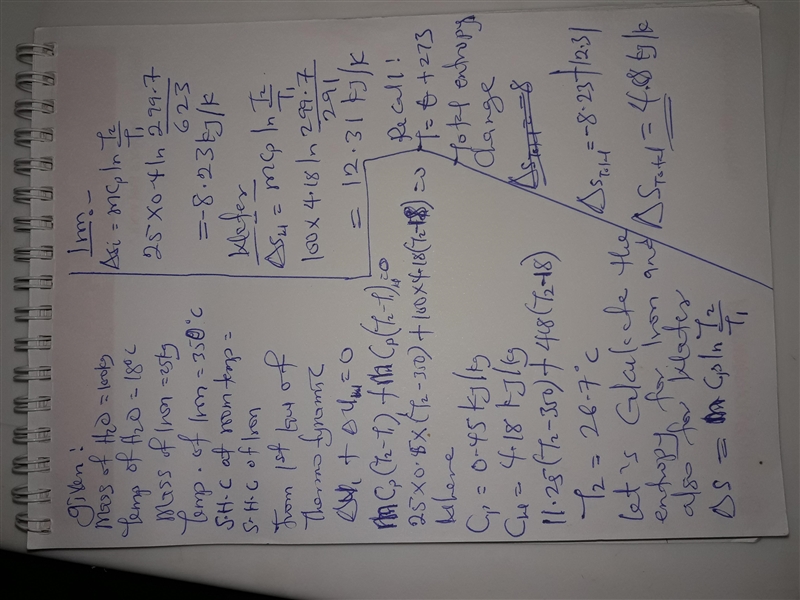 Given:
Mass of H2O = 100kg
Temp of H2O = 18°C
Mass of Iron = 25kg
Temp. of Iron = 350°C
S.H.C at room temp =
S.H.C of Iron
From 1st law of
Thermodynamic
ΔUI + ΔUW = 0
mCp(T2-T1)I + mCp(T2-T1)W = 0
25×0.45×(T2-350)+100×4.18(T2-18)=0
Where
CI = 0.45 kJ/kg
CW = 4.18 kJ/kg
11.25(T2-350) + 418(T2-18)
T2 = 26.7°C
Let's Calculate the
entropy for Iron and
also for Water
ΔS = mCp ln T2/T1
Iron:-
ΔSi = mCp ln T2/T1
25×0.4 ln 299.7/623
= -8.23 kJ/K
Water
ΔSW = mCp ln T2/T1
100×4.18 ln 299.7/291
= 12.31 kJ/K
Recall!
T = θ + 273
Total entropy
change
ΔSTotal = -8
ΔSTotal = -8.23+12.31
ΔSTotal = 4.08 kJ/K